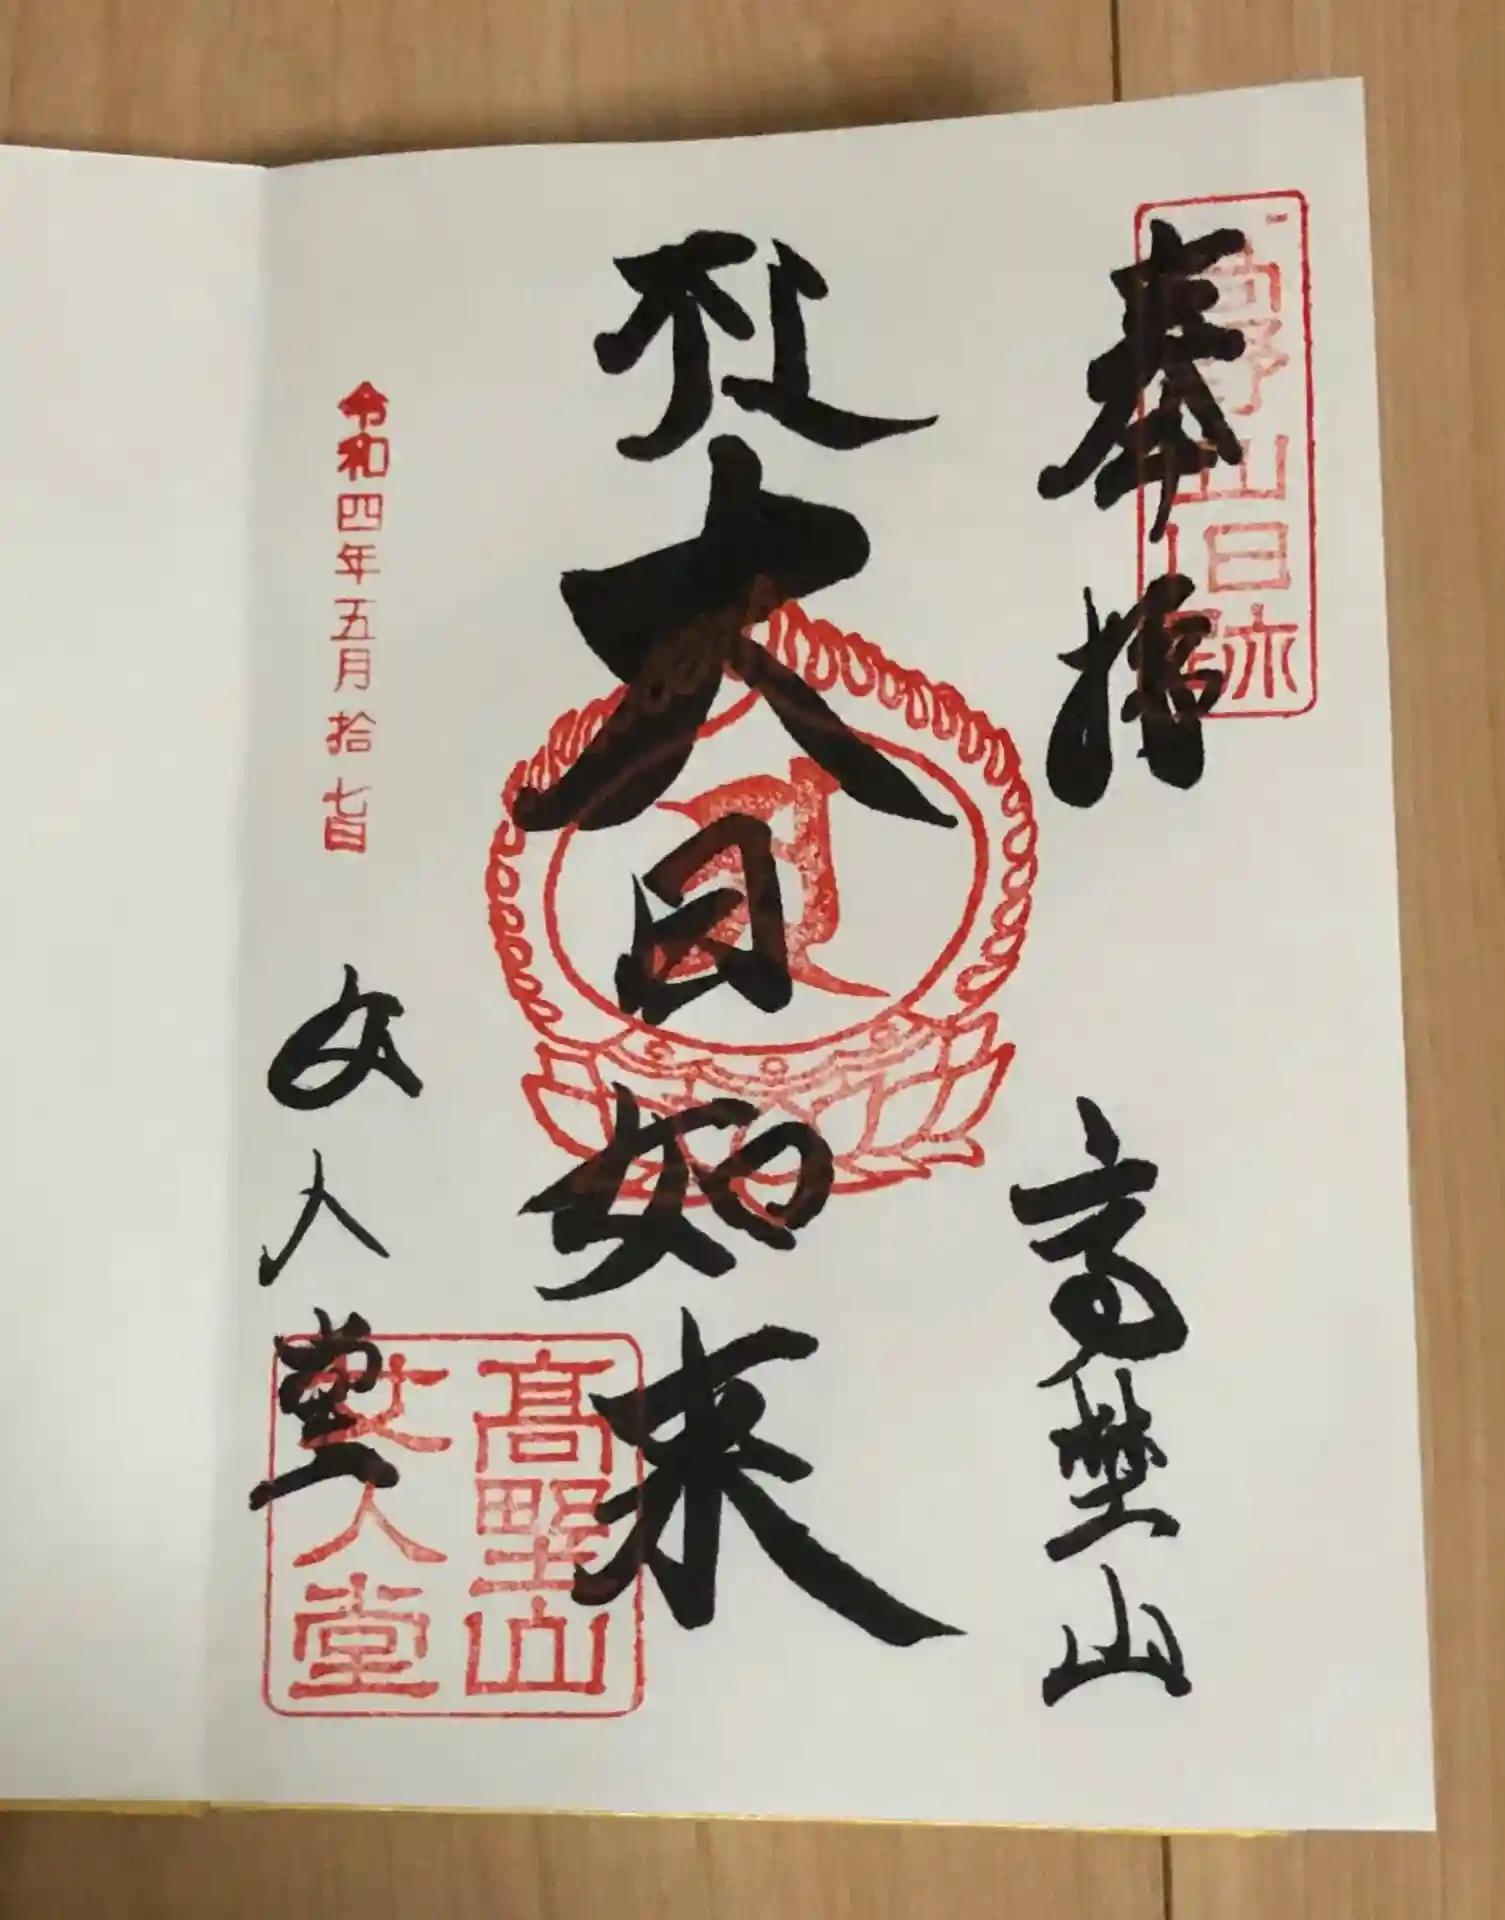 奉拝
高埜山
高野山旧跡
大日如来
令和四年五月拾七日
女人堂
高野山
女人堂